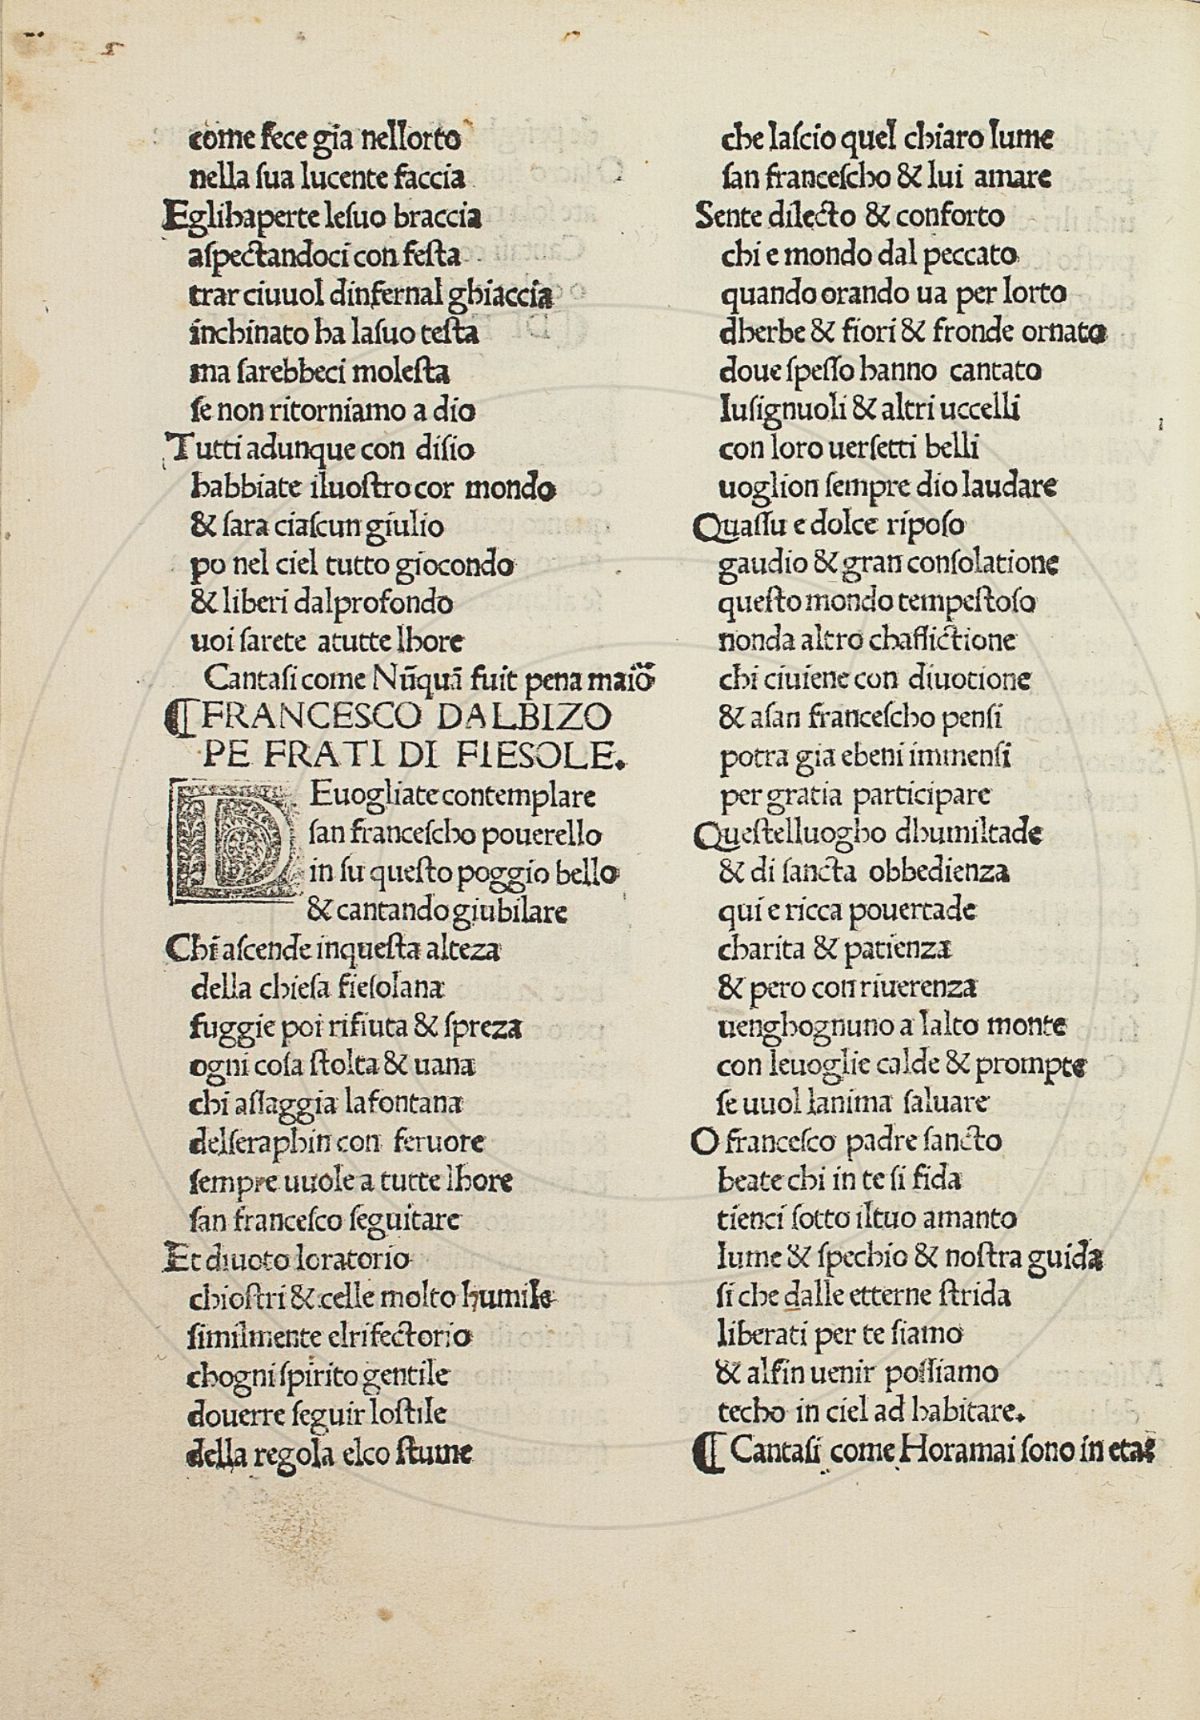 come fece gia nellorto
nella ſua lucente faccia
Eglihaperte leſuo braccia
aſpectandoci con feſta
trar ciuuol dinfernal ghiaccia
inchinato ha laſuo teſta
ma ſarebbeci moleſta
ſe non ritorniamo a dio
Tutti adunque con diſio
habbiate iluoſtro cor mondo
& ſara ciaſcun giulio
po nel ciel tutto giocondo
& liberi dalprofondo
uoi ſarete atutte lhore
Cantaſi come Nūquā fuit pena maior
¶ FRANCESCO DALBIZO
PE FRATI DI FIESOLE.
DEuogliate contemplare
ſan franceſcho pouerello
in ſu queſto poggio bello
& cantando giubilare
Chi aſcende inqueſta alteza
della chieſa fieſolana
fuggie poi rifiuta & ſpreza
ogni coſa ſtolta & uana
chi aſſaggia lafontana
delſeraphin con feruore
ſempre uuole a tutte lhore
ſan franceſco ſeguitare
Et diuoto loratorio
chioſtri & celle molto humile
ſimilmente elrifectorio
chogni ſpirito gentile
douerre ſeguir loſtile
della regola elco ſtume
che laſcio quel chiaro lume
ſan franceſcho & lui amare
Sente dilecto & conforto
chi e mondo dal peccato
quando orando ua per lorto
dherbe & fiori & fronde ornato
doue ſpeſſo hanno cantato
luſignuoli & altri uccelli
con loro uerſetti belli
uoglion ſempre dio laudare
Quaſſu e dolce ripoſo
gaudio & gran conſolatione
queſto mondo tempeſtoſo
nonda altro chafflictione
chi ciuiene con diuotione
& aſan franceſcho penſi
potra gia ebeni immenſi
per gratia participare
Queſtelluogho dhumiltade
& di ſancta obbedienza
qui e ricca pouertade
charita & patienza
& pero con riuerenza
uenghognuno a lalto monte
con leuoglie calde & prompte
ſe uuol lanima ſaluare
O franceſco padre ſancto
beate chi in te ſi fida
tienci ſotto iltuo amanto
lume & ſpechio & noſtra guida
ſi che dalle etterne ſtrida
liberati per te ſiamo
& alfin uenir poſſiamo
techo in ciel ad habitare.
¶ Cantaſi come Horamai ſono in eta